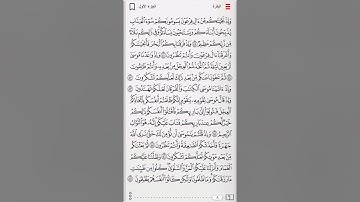 البقرة الجزء الأول
وَإِذْ نَجَّيْنَٰكُم مِّنْ ءَالِ فِرْعَوْنَ يَسُومُونَكُمْ سُوٓءَ ٱلْعَذَابِ
يُذَبِّحُونَ أَبْنَآءَكُمْ وَيَسْتَحْيُونَ نِسَآءَكُمْ وَفِى ذَٰلِكُم بَلَآءٌ
مِّن رَّبِّكُمْ عَظِيمٌ ٤٩ وَإِذْ فَرَقْنَا بِكُمُ ٱلْبَحْرَ فَأَنجَيْنَٰكُمْ
وَأَغْرَقْنَآ ءَالَ فِرْعَوْنَ وَأَنتُمْ تَنظُرُونَ ٥٠ وَإِذْ وَٰعَدْنَا مُوسَىٰٓ
أَرْبَعِينَ لَيْلَةً ثُمَّ ٱتَّخَذْتُمُ ٱلْعِجْلَ مِنۢ بَعْدِهِۦ وَأَنتُمْ ظَٰلِمُونَ ٥١
ثُمَّ عَفَوْنَا عَنكُم مِّنۢ بَعْدِ ذَٰلِكَ لَعَلَّكُمْ تَشْكُرُونَ ٥٢
وَإِذْ ءَاتَيْنَا مُوسَى ٱلْكِتَٰبَ وَٱلْفُرْقَانَ لَعَلَّكُمْ تَهْتَدُونَ ٥٣
وَإِذْ قَالَ مُوسَىٰ لِقَوْمِهِۦ يَٰقَوْمِ إِنَّكُمْ ظَلَمْتُمْ أَنفُسَكُم بِٱتِّخَاذِكُمُ
ٱلْعِجْلَ فَتُوبُوٓا۟ إِلَىٰ بَارِئِكُمْ فَٱقْتُلُوٓا۟ أَنفُسَكُمْ ذَٰلِكُمْ خَيْرٌ لَّكُمْ
عِندَ بَارِئِكُمْ فَتَابَ عَلَيْكُمْ إِنَّهُۥ هُوَ ٱلتَّوَّابُ
ٱلرَّحِيمُ ٥٤ وَإِذْ قُلْتُمْ يَٰمُوسَىٰ لَن نُّؤْمِنَ لَكَ حَتَّىٰ نَرَى ٱللَّهَ
جَهْرَةً فَأَخَذَتْكُمُ ٱلصَّٰعِقَةُ وَأَنتُمْ تَنظُرُونَ ٥٥ ثُمَّ بَعَثْنَٰكُم
مِّنۢ بَعْدِ مَوْتِكُمْ لَعَلَّكُمْ تَشْكُرُونَ ٥٦ وَظَلَّلْنَا عَلَيْكُمُ
ٱلْغَمَامَ وَأَنزَلْنَا عَلَيْكُمُ ٱلْمَنَّ وَٱلسَّلْوَىٰ كُلُوا۟ مِن طَيِّبَٰتِ
مَا رَزَقْنَٰكُمْ وَمَا ظَلَمُونَا وَلَٰكِن كَانُوٓا۟ أَنفُسَهُمْ يَظْلِمُونَ ٥٧
٨